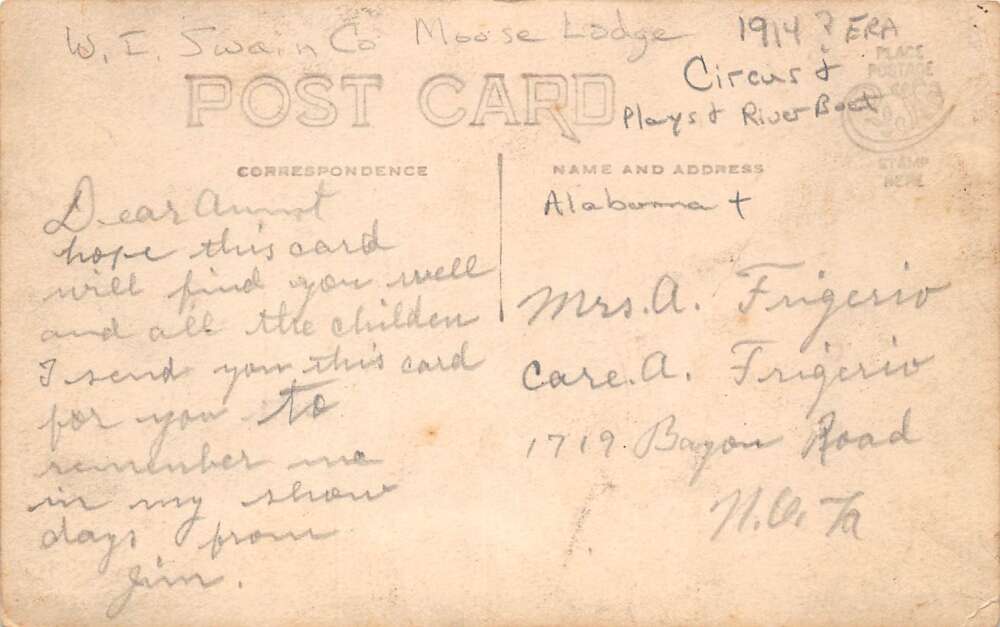 W. I. Swain Co Moose Lodge 1914? ERA
Circus &
Plays & River Boat
POST CARD
PLACE
POSTAGE
STAMP
HERE
CORRESPONDENCE
NAME AND ADDRESS
Alabama +
Dear Aunt
hope this card
will find you well
and all the childen
I send you this card
for you to
remember me
in my show
days from
Jim.
Mrs. A. Frigerio
Care. A. Frigerio
1719. Bayou Road
N.O. La